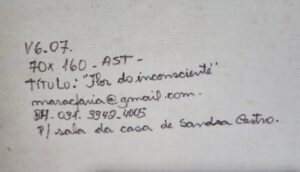 V6.07.
70x 160 - AST -
TÍTULO: "Flor do inconsciente"
maraclaria@gmail.com.
BH. 031. 3342-4005
P/ sala da casa de Sandra Castro.